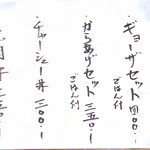 ギョーザセット四〇〇
ごはん付
からあげセット三五〇
ごはん付
チャーシュー丼三〇〇